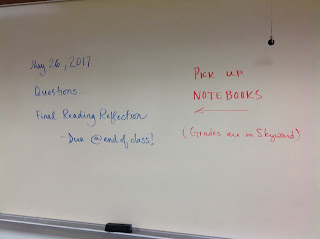 May 26, 2017
Questions
Final Reading Reflection
- Due @ end of class!
PICK UP
NOTEBOOKS
(Grades are in Skyward)